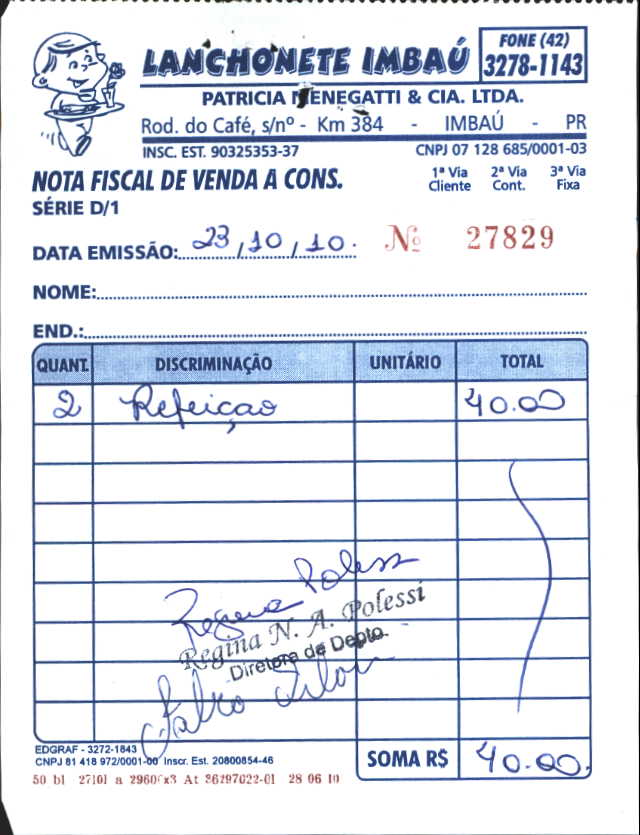 LANCHONETE IMBAÚ
FONE (42)
3278-1143
PATRICIA MENEGATTI & CIA. LTDA.
Rod. do Café, s/nº - Km 384 - IMBAÚ - PR
INSC. EST. 90325353-37 CNPJ 07 128 685/0001-03
NOTA FISCAL DE VENDA A CONS.
1ª Via Cliente 2ª Via Cont. 3ª Via Fixa
SÉRIE D/1
DATA EMISSÃO: 23/10/10. Nº 27829
NOME:
END.:
QUANT. DISCRIMINAÇÃO UNITÁRIO TOTAL
2 Refeiçao 40.00
Regina Poless
Regina N. A. Polessi
Diretora de Depto.
EDGRAF - 3272-1843
CNPJ 81 418 972/0001-00 Inscr. Est. 20800854-46
SOMA R$ 40.00.
50 bl 27101 a 29600x3 At 36297622-01 28 06 10